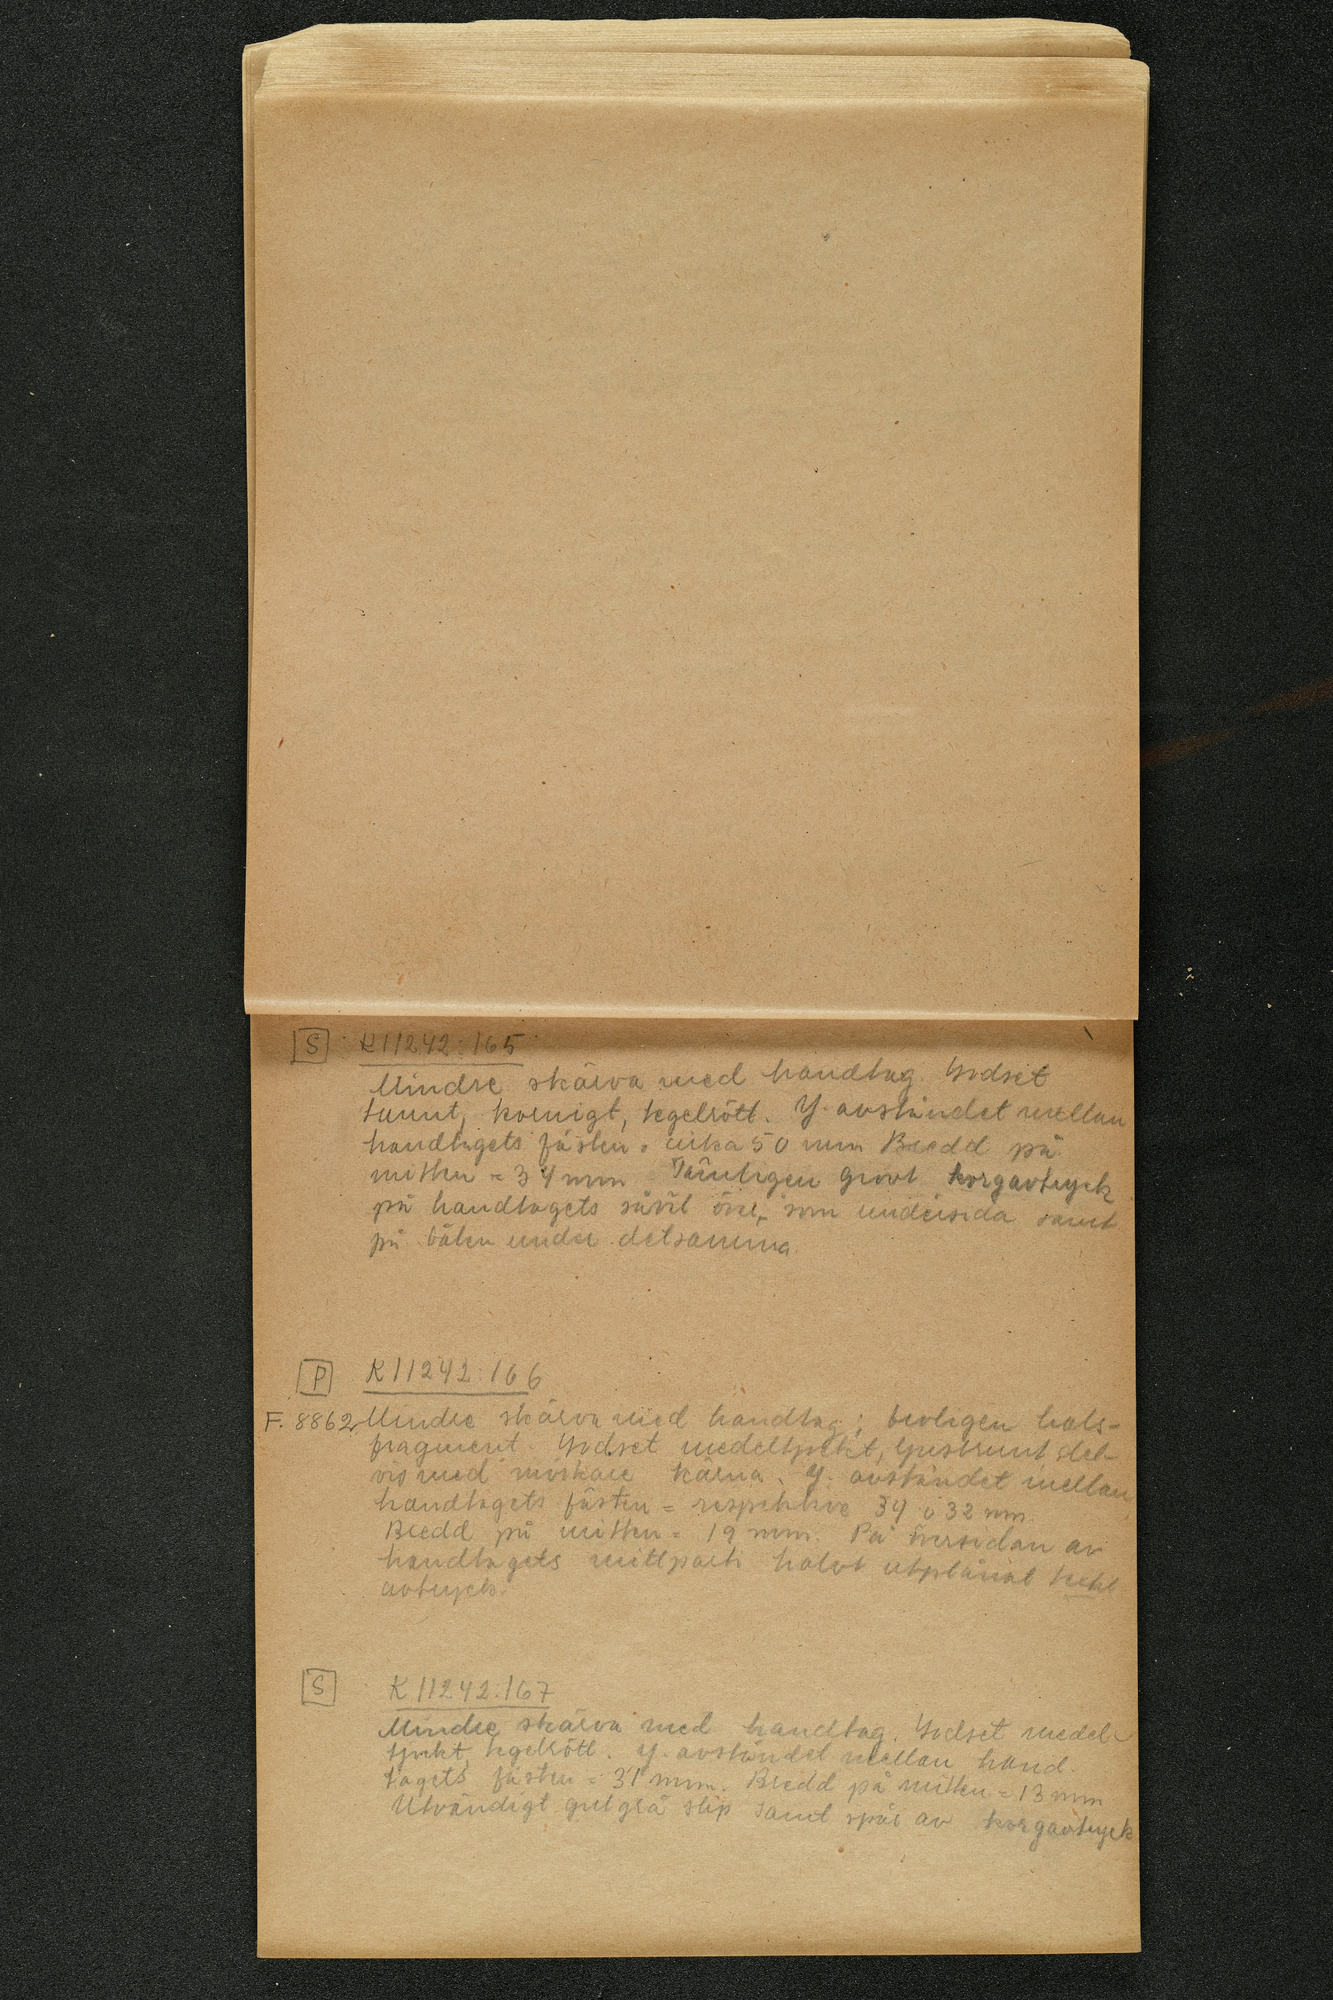 S K11242:165
Mindre skärva med handtag. Godset
tunnt, kornigt, tegelrött. Y. avståndet mellan
handtagets fästen = cirka 50 mm Bredd på
mitten = 34 mm Tämligen grovt korgavtryck
på handtagets såväl över- som undersida samt
på bålen under detsamma
P K11242:166
F. 8862 Mindre skärva med handtag; troligen hals-
fragment. Godset medeltjockt, ljusbrunt, del-
vis med mörkare kärna. Y. avståndet mellan
handtagets fästen = respektive 39 o 32 mm
Bredd på mitten = 19 mm. På översidan av
handtagets mittparti halvt utplånat textil
avtryck.
S K11242:167
Mindre skärva med handtag. Godset medel-
tjockt, tegelrött. Y. avståndet mellan hand-
tagets fästen = 31 mm. Bredd på mitten = 13 mm
Utvändigt gulgrå slip samt spår av korgavtryck